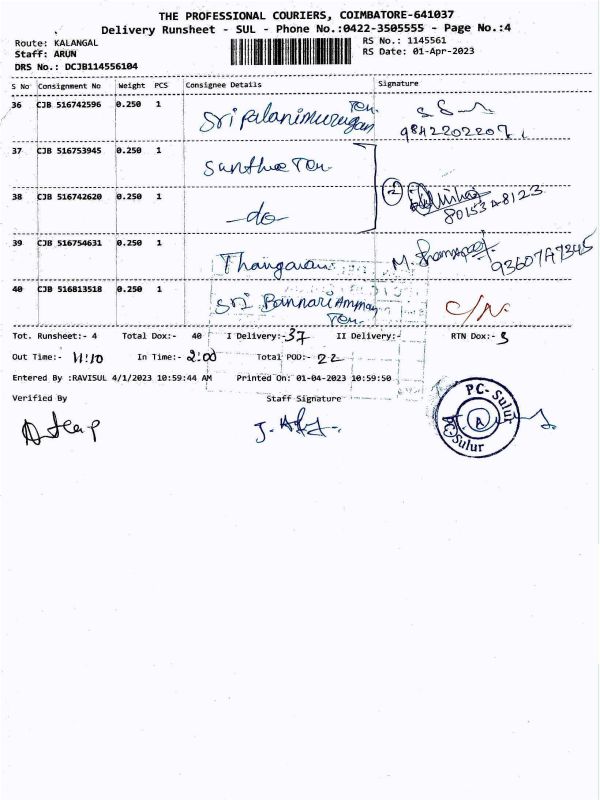 THE PROFESSIONAL COURIERS, COIMBATORE-641037
Delivery Runsheet - SUL - Phone No.:0422-3505555 - Page No.:4
Route: KALANGAL
RS No.: 1145561
Staff: ARUN
RS Date: 01-Apr-2023
DRS No.: DCJB114556104
S No Consignment No Weight PCS Consignee Details Signature
36 CJB 516742596 0.250 1 Sri Palanimurugan Tex 9842202207
37 CJB 516753945 0.250 1 Tex
38 CJB 516742620 0.250 1 -do- 2 80153 48123
39 CJB 516754631 0.250 1 M. 93607 47345
40 CJB 516813518 0.250 1 Sri Bannari Amman Tex
Tot. Runsheet:- 4 Total Dox:- 40 I Delivery:- 37 II Delivery:- RTN Dox:- 3
Out Time:- 11:10 In Time:- 2:00 Total POD:- 22
Entered By :RAVISUL 4/1/2023 10:59:44 AM Printed On: 01-04-2023 10:59:50
Verified By Staff Signature
PC- Sulur
A
Sulur